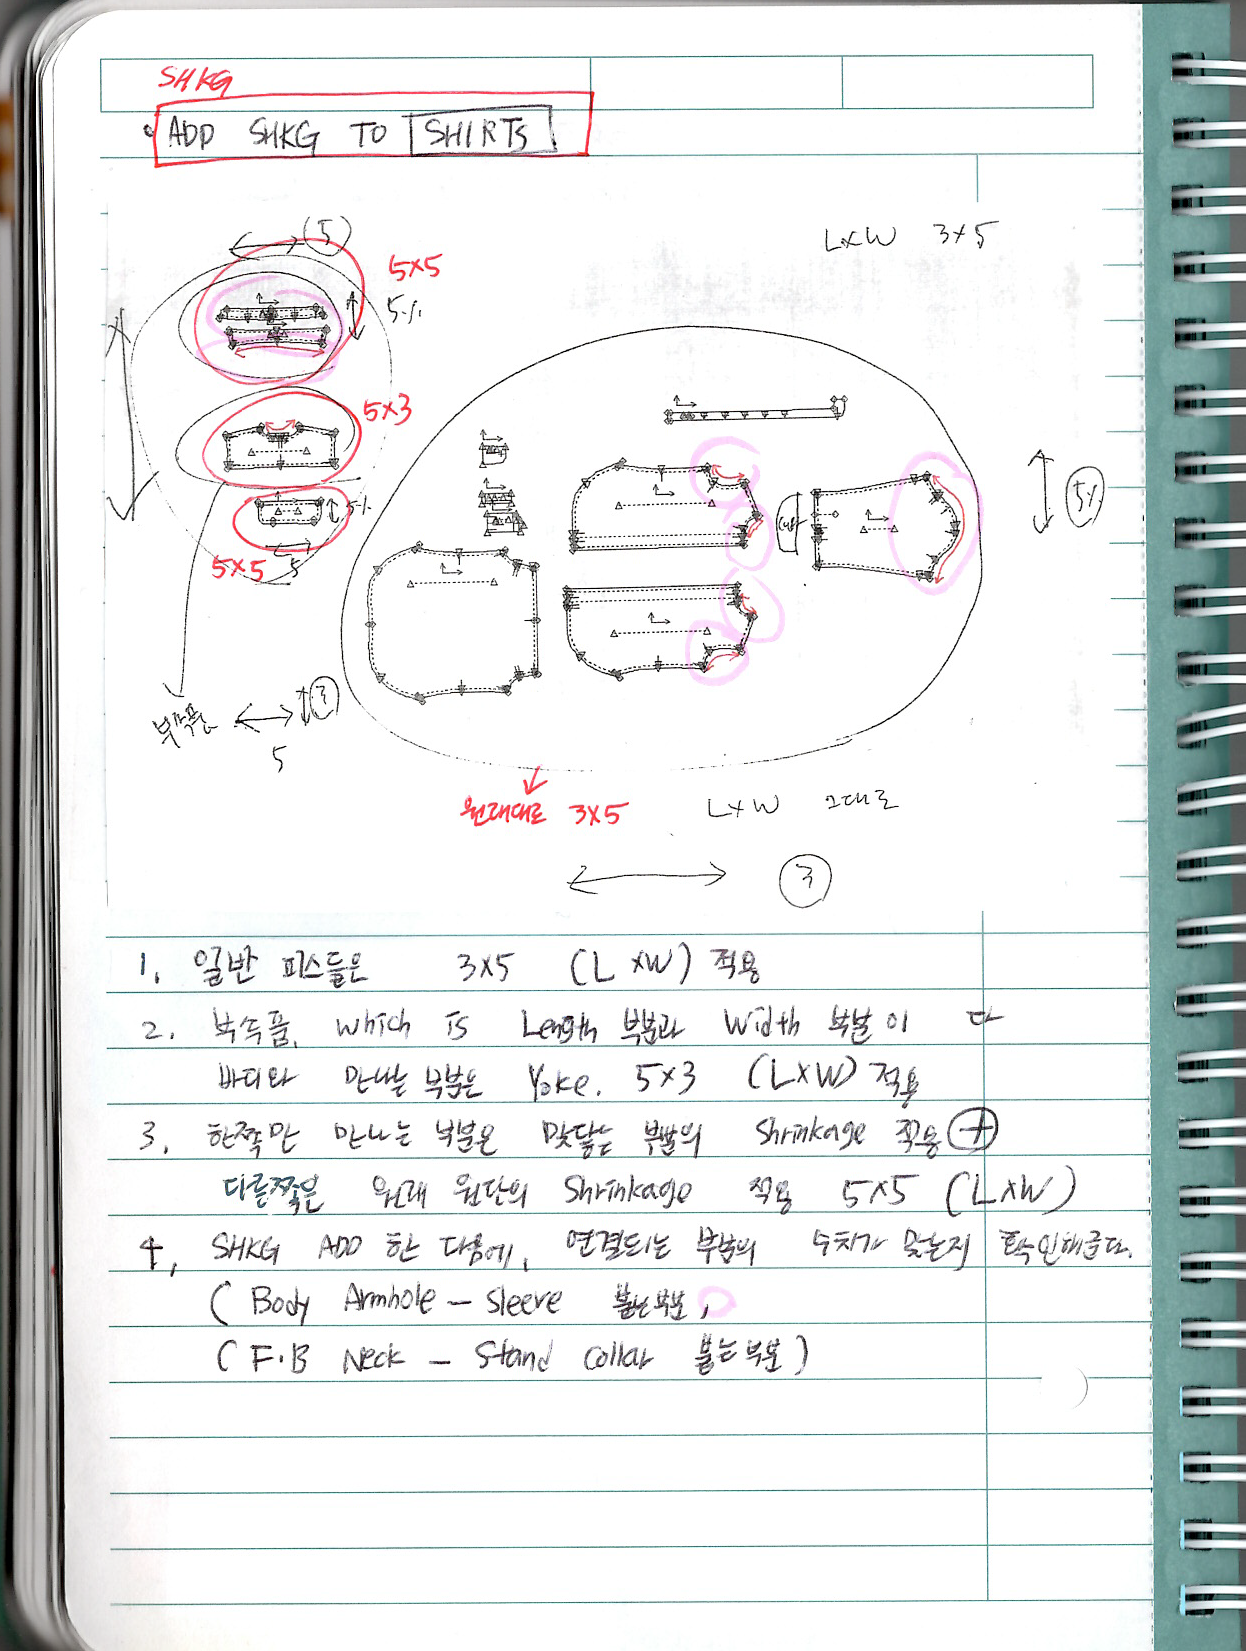 SHKG
ADD SHKG TO SHIRTS
5
5×5
5%
L×W 3×5
5×3
5%
5×5 5
CUFF
5%
부속품
3
5
원래대로 3×5
L×W 그대로
3
1. 일반 피스들은 3×5 (L×W) 적용
2. 부속품, which is Length 부분과 Width 부분이 다
바디와 만나는 부분은 Yoke. 5×3 (L×W) 적용
3. 한쪽만 만나는 부분은 맞닿는 부분의 Shrinkage 적용 +
다른쪽은 원래 원단의 Shrinkage 적용 5×5 (L×W)
4. SHKG ADD 한 다음에, 연결되는 부분의 수치가 맞는지 확인해준다.
( Body Armhole - Sleeve 붙는부분,
( F.B Neck - Stand Collar 붙는부분 )